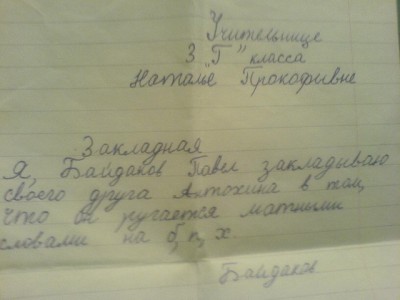 Учительнице
3 „Г" класса
Наталье Прокофьвне
Закладная
Я, Байдаков Павел закладываю
своего друга Антохина в том,
что он ругается матными
словами на б, п, х.
Байдаков